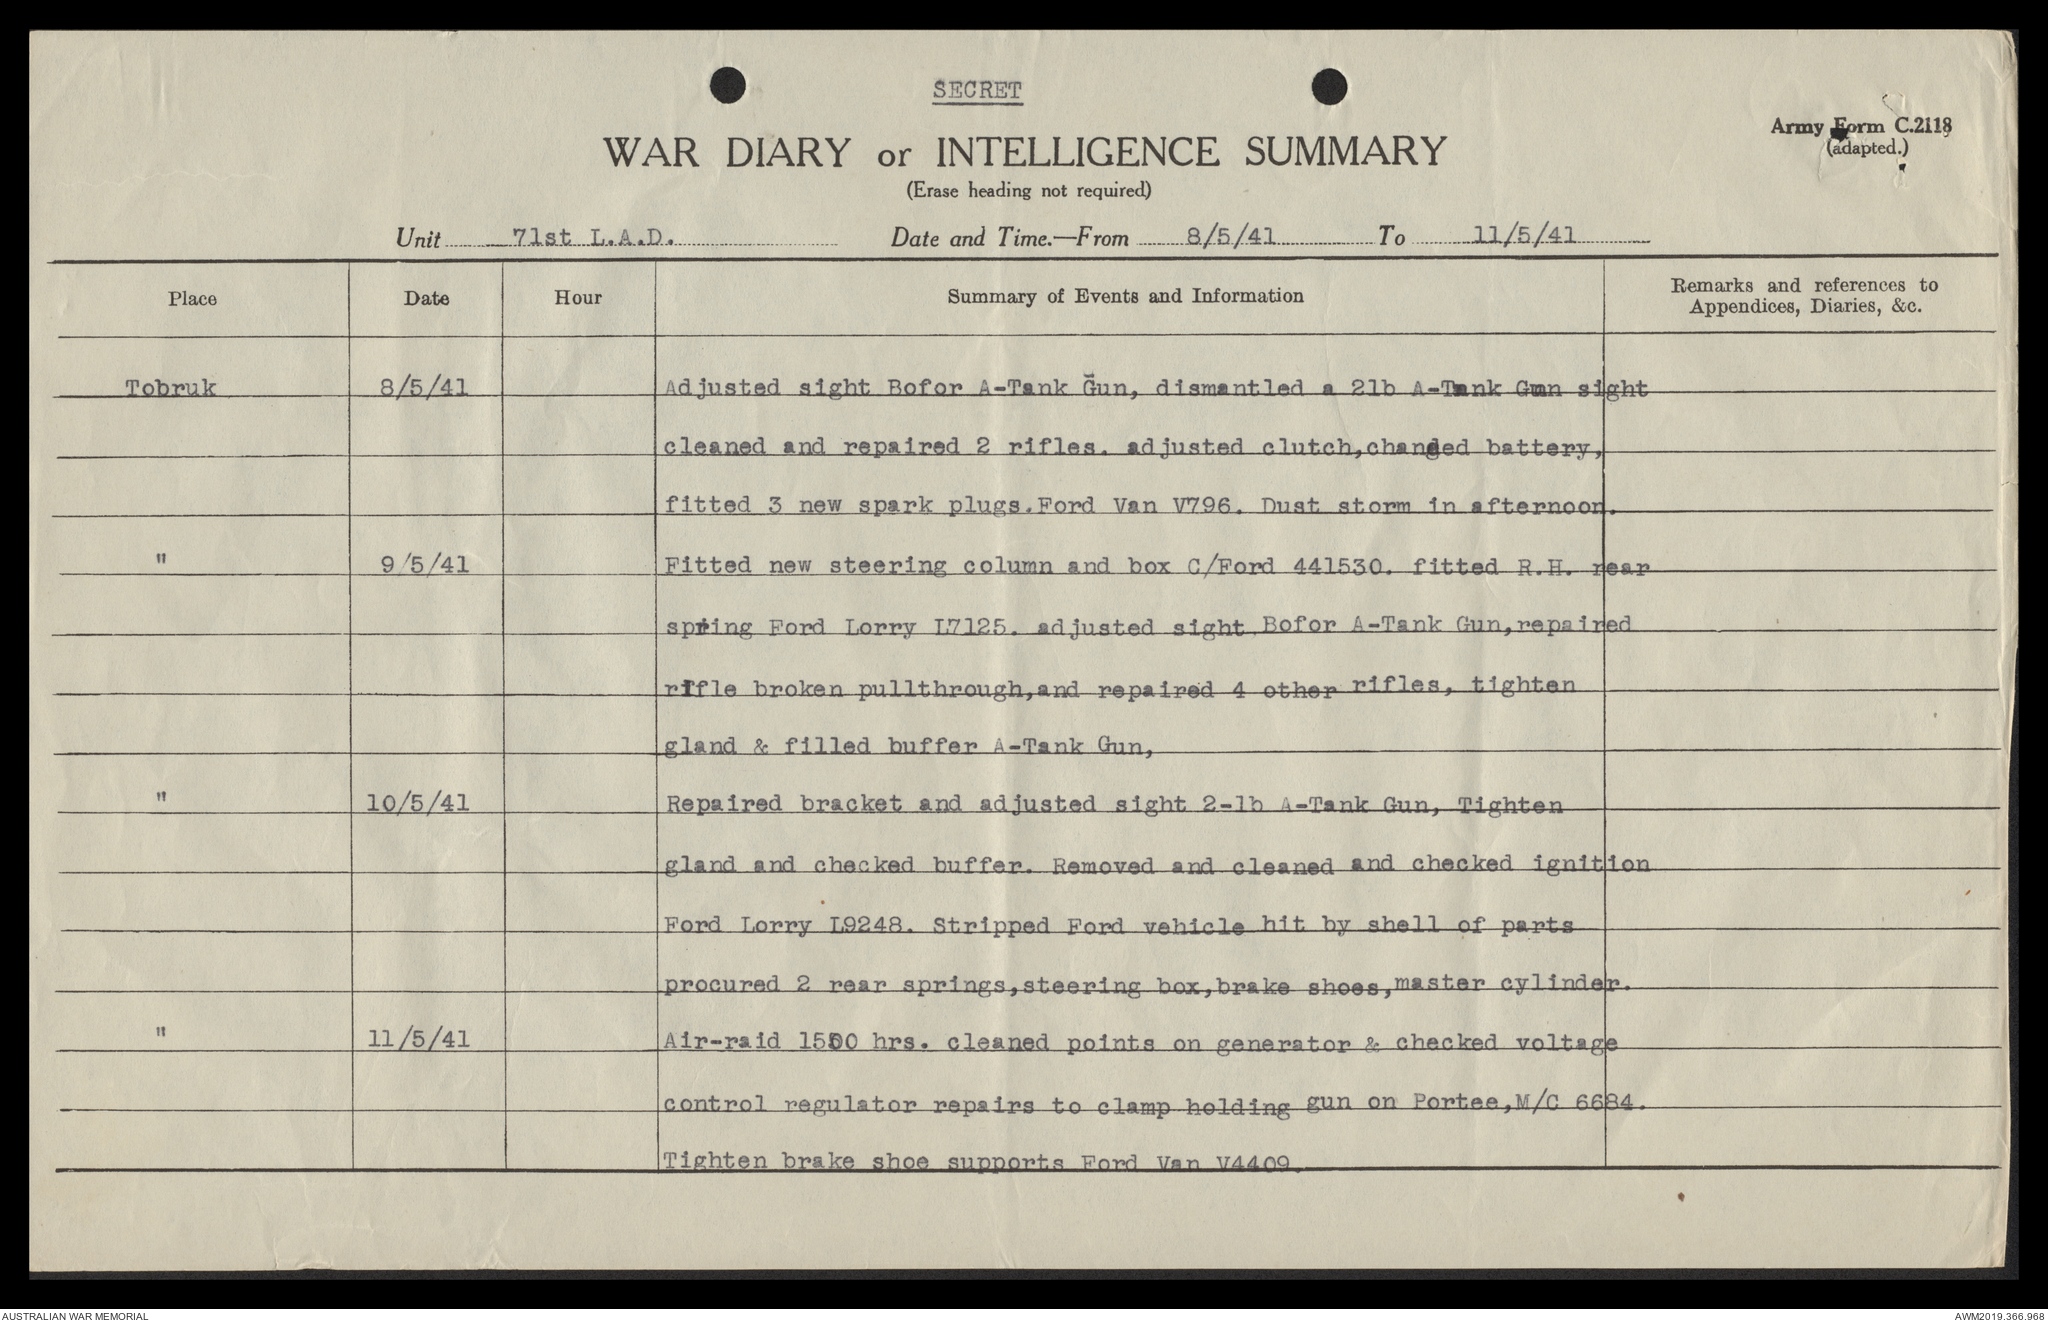 SECRET
Army Form C.2118
(adapted.)
WAR DIARY or INTELLIGENCE SUMMARY
(Erase heading not required)
Unit 71st L.A.D. Date and Time.—From 8/5/41 To 11/5/41
Place Date Hour Summary of Events and Information Remarks and references to
Appendices, Diaries, &c.
Tobruk 8/5/41 Adjusted sight Bofor A-Tank Gun, dismantled a 2lb A-Tank Gun sight
cleaned and repaired 2 rifles. adjusted clutch,changed battery,
fitted 3 new spark plugs.Ford Van V796. Dust storm in afternoon.
" 9/5/41 Fitted new steering column and box C/Ford 441530. fitted R.H. rear
spring Ford Lorry L7125. adjusted sight Bofor A-Tank Gun,repaired
rifle broken pullthrough,and repaired 4 other rifles, tighten
gland & filled buffer A-Tank Gun,
" 10/5/41 Repaired bracket and adjusted sight 2-lb A-Tank Gun, Tighten
gland and checked buffer. Removed and cleaned and checked ignition
Ford Lorry L9248. Stripped Ford vehicle hit by shell of parts
procured 2 rear springs,steering box,brake shoes,master cylinder.
" 11/5/41 Air-raid 1500 hrs. cleaned points on generator & checked voltage
control regulator repairs to clamp holding gun on Portee,M/C 6684.
Tighten brake shoe supports Ford Van V4409.
AUSTRALIAN WAR MEMORIAL
AWM2019.366.968